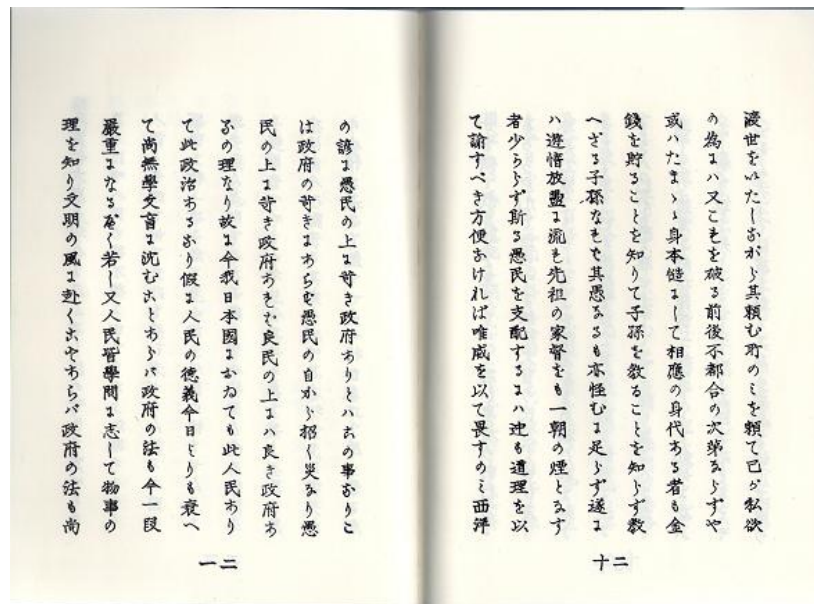 渡世をいたしながら其頼む所のミを頼て己が私欲
の為にハ又これを破る前後不都合の次第ならずや
或ハたまゝゝ身本慥にして相應の身代ある者も金
錢を貯ることを知りて子孫を教ることを知らず教
へざる子孫なれバ其愚なるも亦怪むに足らず遂に
ハ遊惰放蕩に流れ先祖の家督をも一朝の煙となす
者少からず斯る愚民を支配するにハ迚も道理を以
て諭すべき方便なければ唯威を以て畏すのミ西洋
二十
の諺に愚民の上に苛き政府ありとハこの事なりこ
は政府の苛きにあらず愚民の自から招く災なり愚
民の上に苛き政府あれバ良民の上にハ良き政府あ
るの理なり故に今我日本國においても此人民あり
て此政治あるなり假に人民の徳義今日よりも衰へ
て尚無學文盲に沈むことあらバ政府の法も今一段
嚴重になるべく若し又人民皆學問に志して物事の
理を知り文明の風に赴くことあらバ政府の法も尚
二一